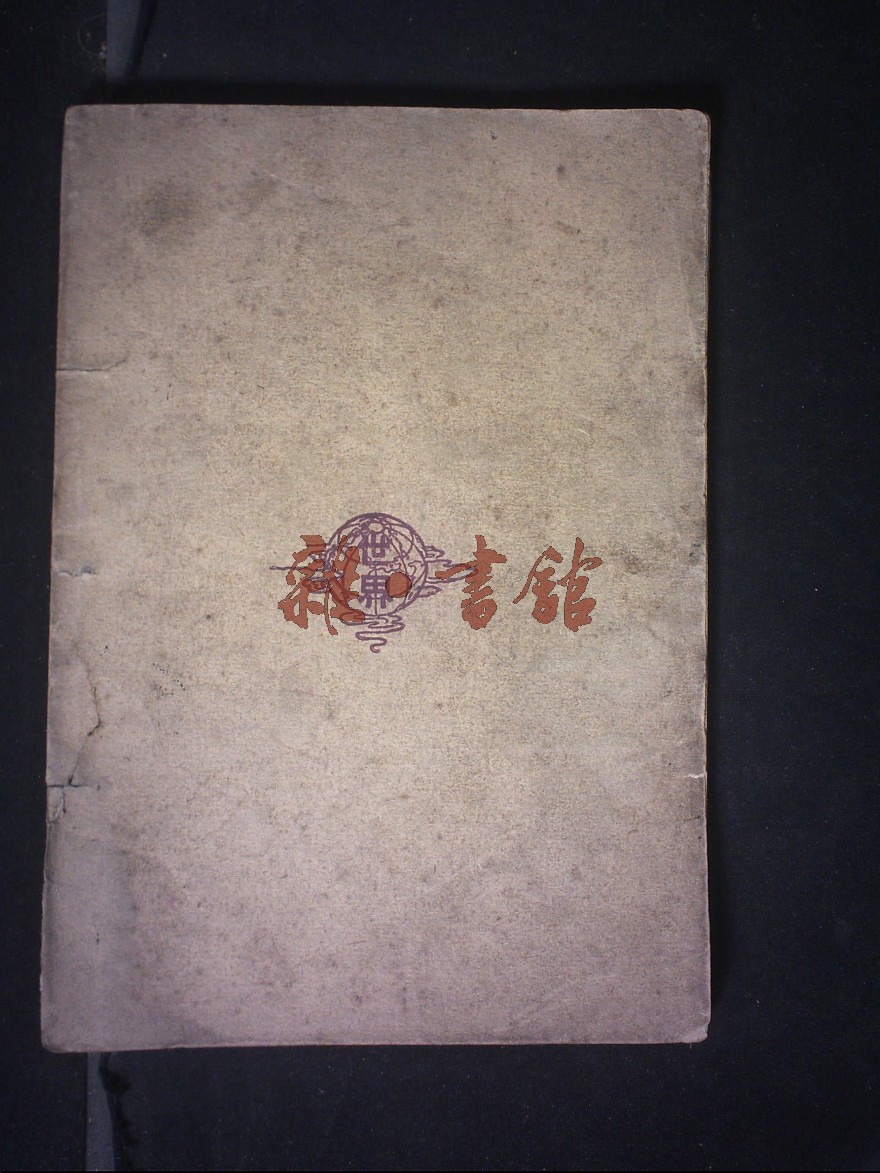 世界
雜·書館